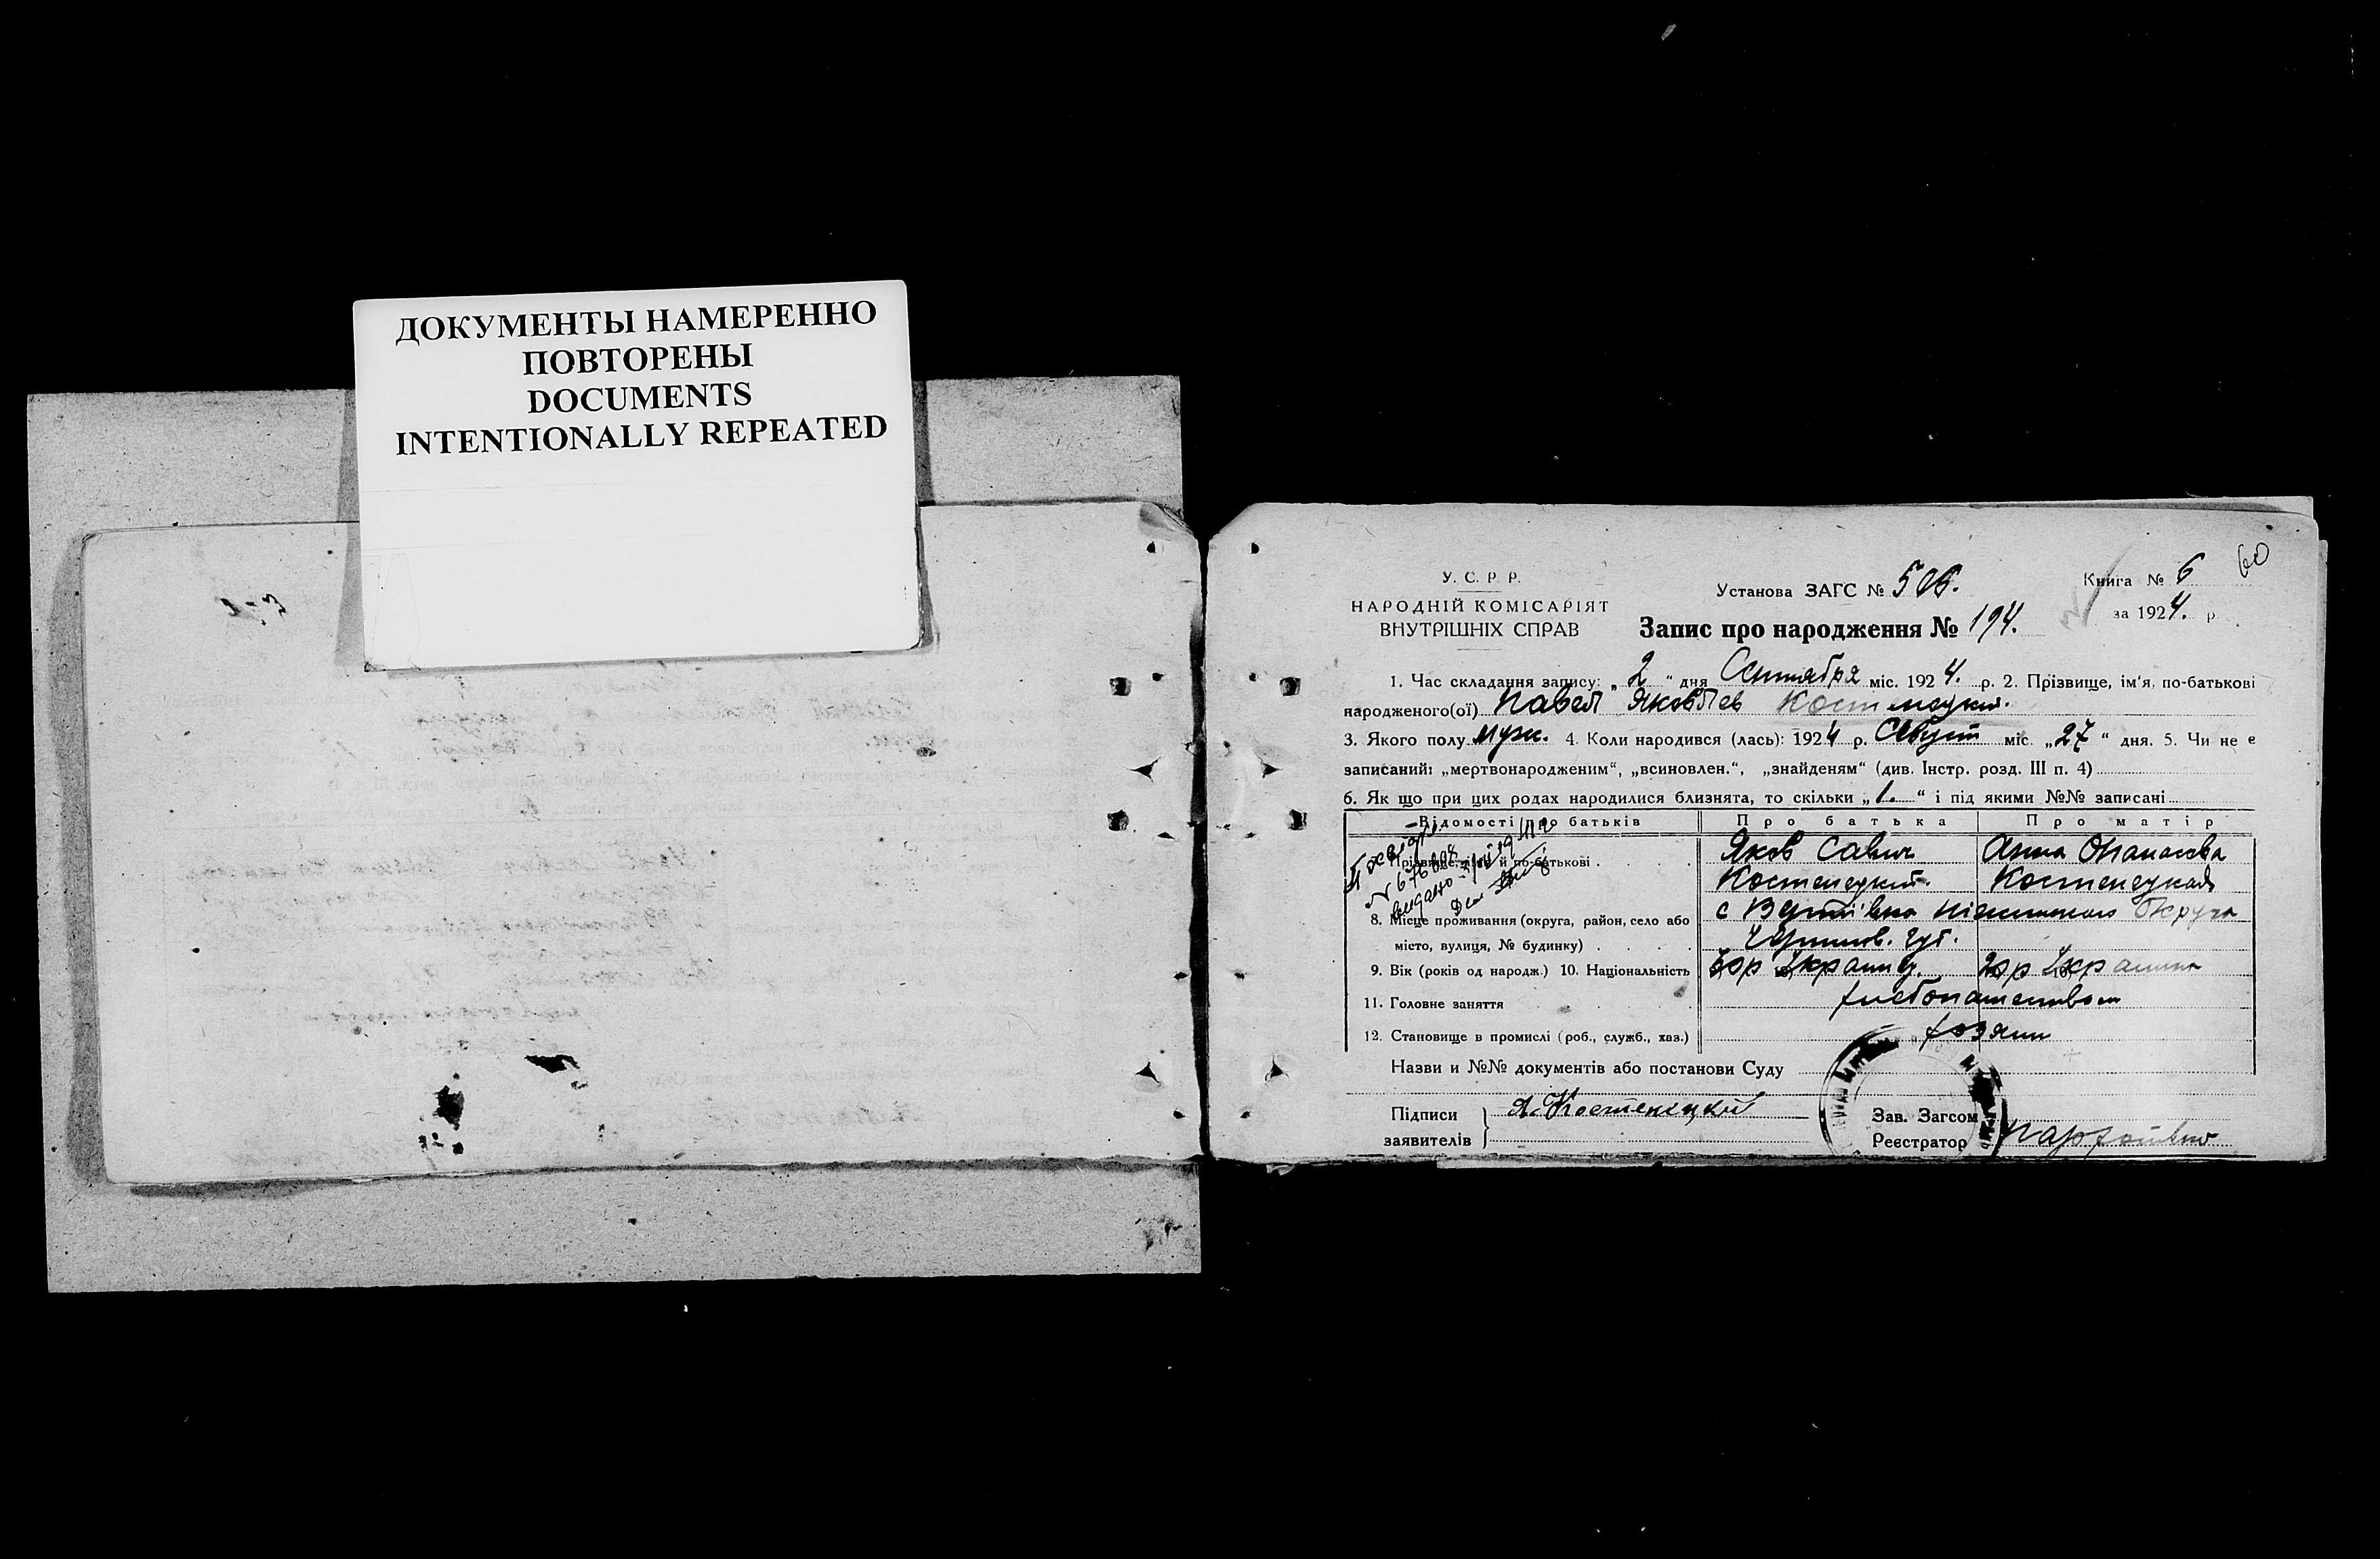 ДОКУМЕНТЫ НАМЕРЕННО
ПОВТОРЕНЫ
DOCUMENTS
INTENTIONALLY REPEATED
60
У. С. Р. Р.
НАРОДНІЙ КОМІСАРІЯТ
ВНУТРІШНІХ СПРАВ
Установа ЗАГС № 506.
Книга № 6
за 1924. р.
Запис про народження № 194.
1. Час складання запису: „2“ дня Сентября міс. 1924. р. 2. Прізвище, ім'я, по-батькові
народженого(ої) Павел Яковлев Костенецкий.
3. Якого полу муж. 4. Коли народився (лась): 1924 р. Август міс. „27“ дня. 5. Чи не є
записаний: „мертвонародженим“, „всиновлен.“, „знайденям“ (див. Інстр. розд. III п. 4)
6. Як що при цих родах народилися близнята, то скільки „1.“ і під якими №№ записані
Відомості про батьків Про батька Про матір
Прізвище, ім'я й по-батькові Яков Савич Анна Опанасова
Костенецкий. Костенецкая
8. Місце проживання (округа, район, село або с Вертіївка Ніжинського Округа
місто, вулиця, № будинку) Чернигов. губ.
9. Вік (років од народж.) 10. Національність р Украинц. р Украинка
11. Головне заняття хлебопашеством
12. Становище в промислі (роб., служб., хаз.) хозяин
Назви и №№ документів або постанови Суду
Підписи Я. Костенецкий
заявителів
Зав. Загсом
Реєстратор